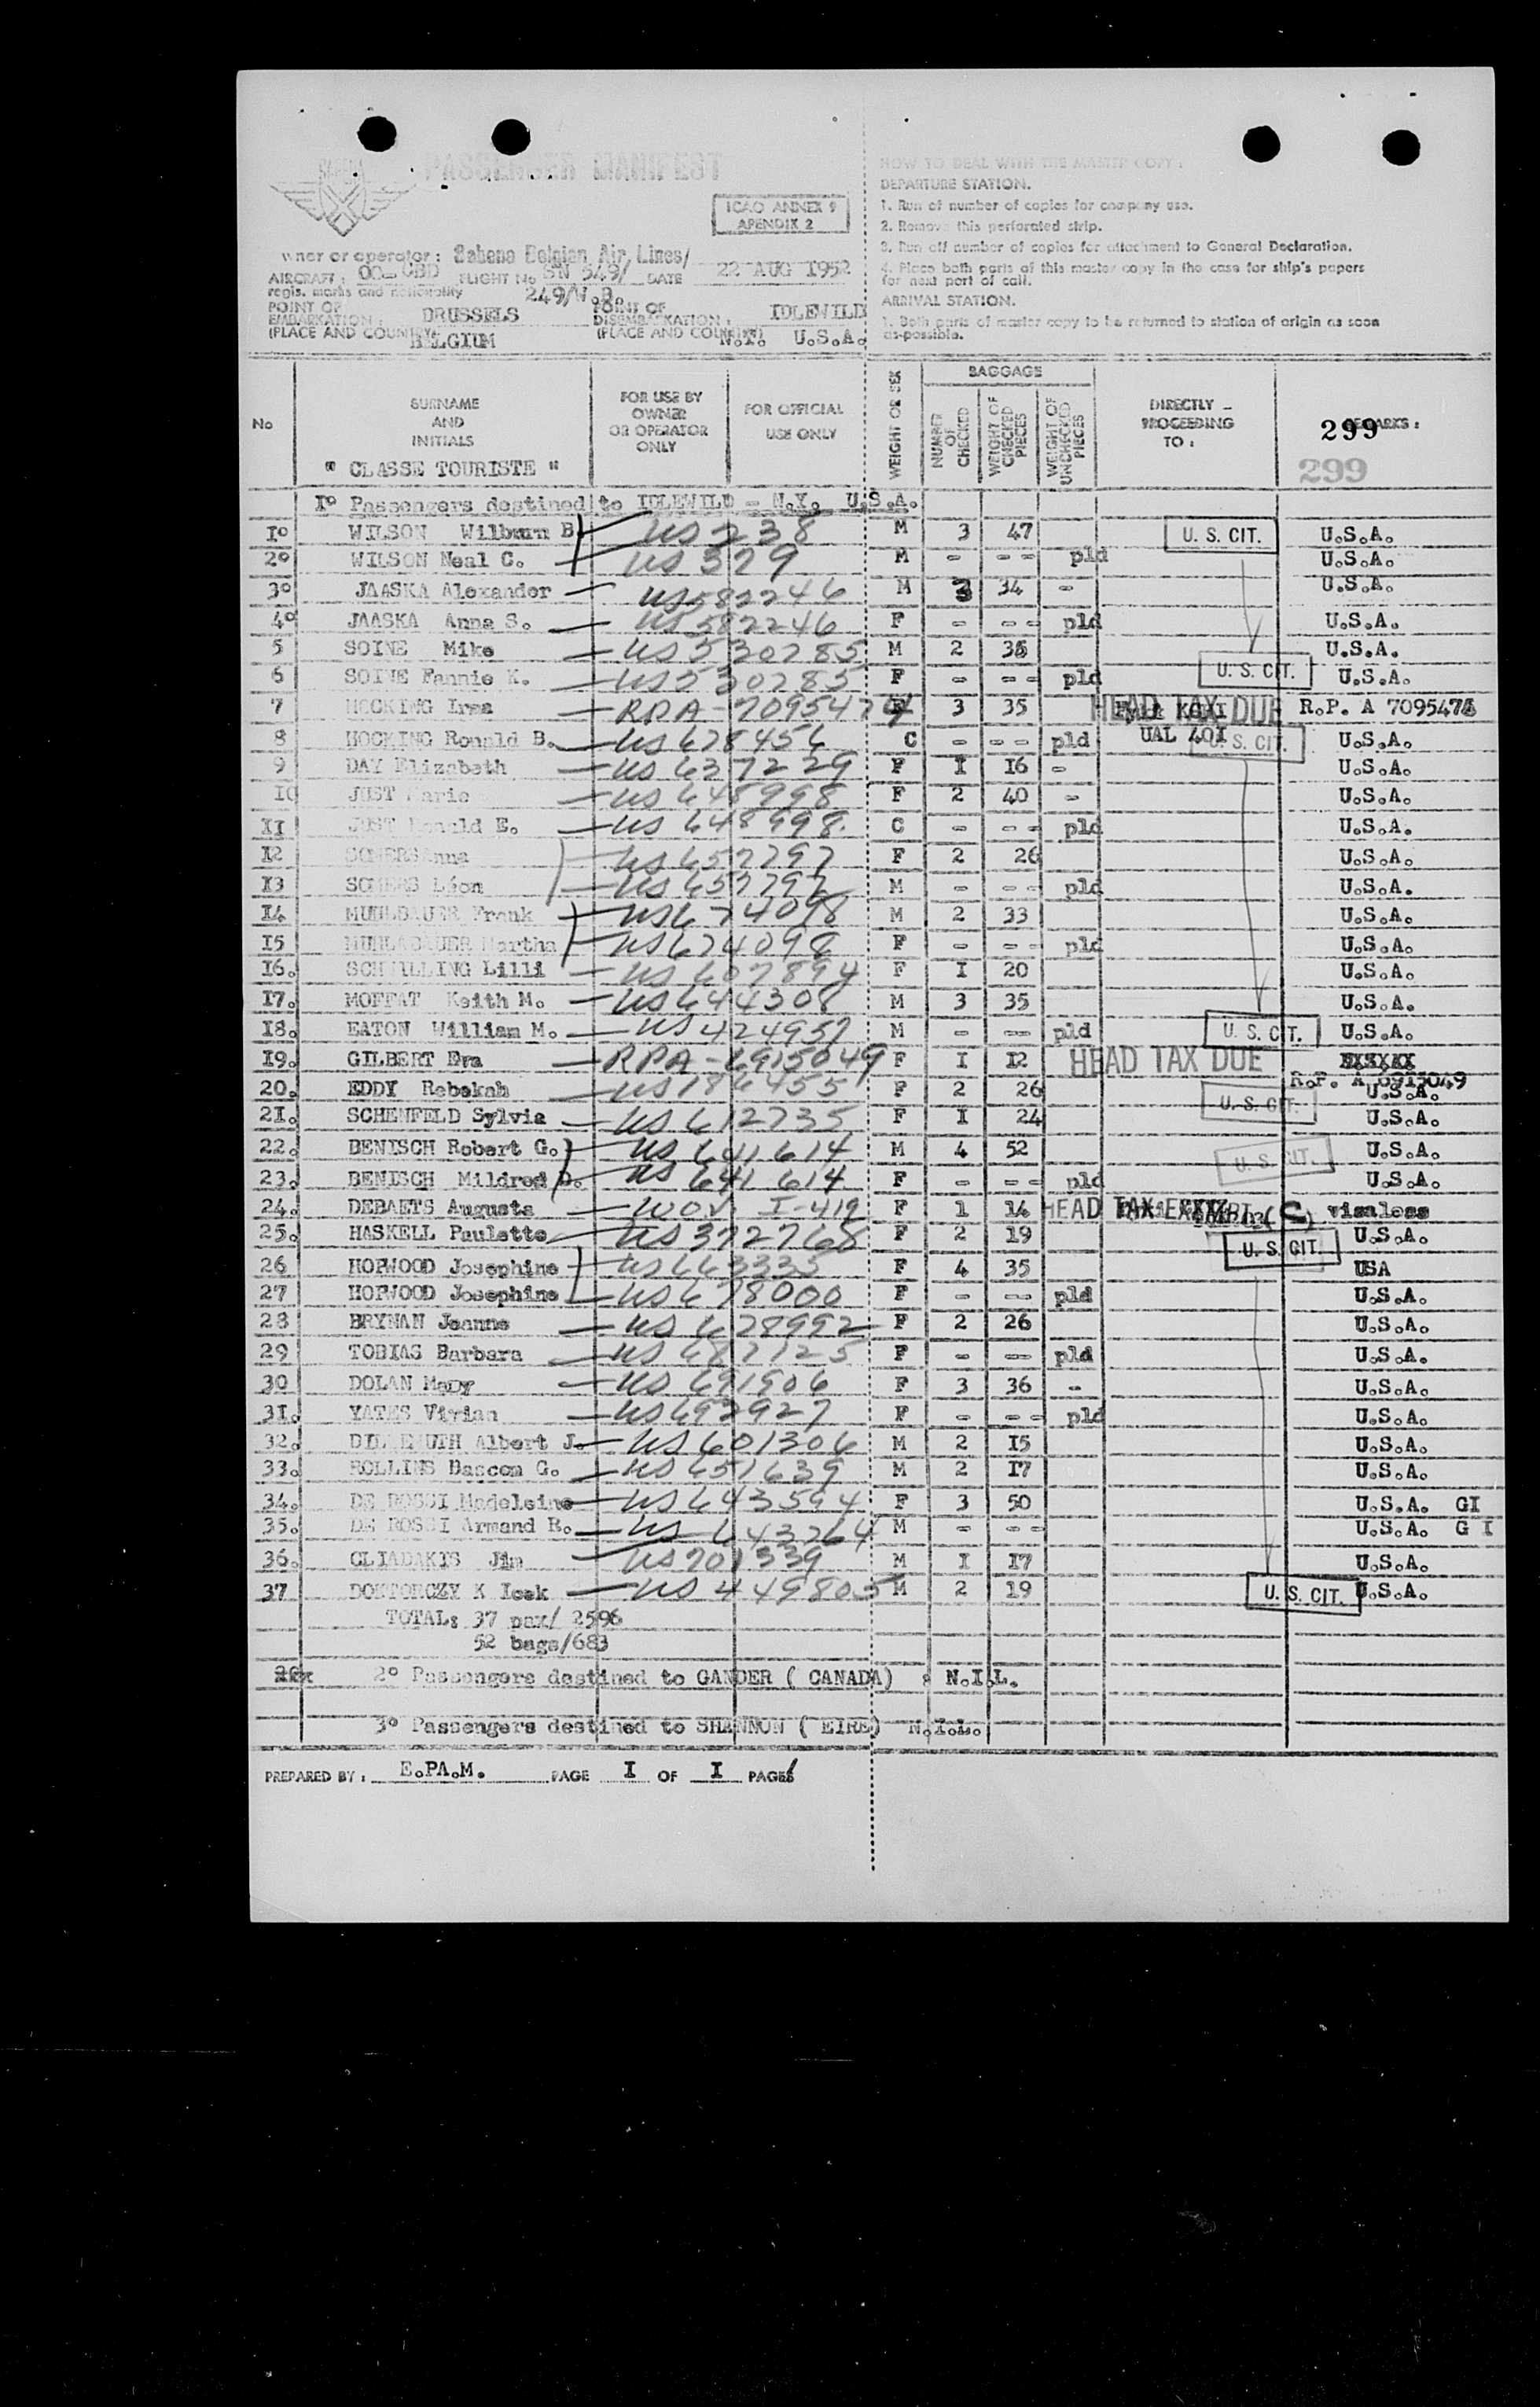 SABENA
PASSENGER MANIFEST
ICAO ANNEX 9
APENDIX 2
wner or operator : Sabena Belgian Air Lines/
AIRCRAFT : OO-CBD FLIGHT No SN 549/ DATE 22 AUG 1952
regis. marks and nationality 249/
POINT OF EMBARKATION : BRUSSELS POINT OF DISEMBARKATION : IDLEWILD
(PLACE AND COUNTRY) BELGIUM (PLACE AND COUNTRY) N.Y. U.S.A.
HOW TO DEAL WITH THE MASTER COPY :
DEPARTURE STATION.
1. Run of number of copies for company use.
2. Remove this perforated strip.
3. Run off number of copies for attachment to General Declaration.
4. Place both parts of this master copy in the case for ship's papers
for next port of call.
ARRIVAL STATION.
1. Both parts of master copy to be returned to station of origin as soon
as-possible.
No
SURNAME AND INITIALS
" CLASSE TOURISTE "
FOR USE BY OWNER OR OPERATOR ONLY
FOR OFFICIAL USE ONLY
WEIGHT OR SEX
BAGGAGE
NUMBER OF CHECKED
WEIGHT OF CHECKED PIECES
WEIGHT OF UNCHECKED PIECES
DIRECTLY - PROCEEDING TO :
REMARKS :
299
299
I° Passengers destined to IDLEWILD - N.Y. U.S.A.
I° WILSON Wilburn B. US 238 M 3 47 U. S. CIT. U.S.A.
2° WILSON Neal C. US 379 M - - - - pld U.S.A.
3° JAASKA Alexander US 582246 M 3 34 - U.S.A.
4° JAASKA Anna S. US 582246 F - - - - pld U.S.A.
5 SOINE Mike US 530785 M 2 36 U.S.A.
6 SOINE Fannie K. US 530785 F - - - - pld U. S. CIT. U.S.A.
7 HOCKING Irma RPA-7095474 F 3 35 HEAD TAX DUE R.P. A 7095474
8 HOCKING Ronald B. US 678456 C - - - - pld UAL 401 U. S. CIT. U.S.A.
9 DAY Elizabeth US 637229 F I 16 - U.S.A.
10 JUST Marie US 648998 F 2 40 - U.S.A.
II JUST Ronald E. US 648998. C - - - - pld U.S.A.
I2 SOMERS Anna US 657797 F 2 26 U.S.A.
I3 SOMERS Léon US 657797 M - - - - pld U.S.A.
I4 MUHLBAUER Frank US 674098 M 2 33 U.S.A.
I5 MUHLABAUER Martha US 674098 F - - - - pld U.S.A.
I6. SCHILLING Lilli US 607894 F I 20 U.S.A.
I7. MOFFAT Keith M. US 644308 M 3 35 U.S.A.
I8. EATON William M. US 424957 M - - - pld U. S. CIT. U.S.A.
I9. GILBERT Eva RPA-6915049 F I I2 HEAD TAX DUE
R.P. A 6915049
20. EDDY Rebekah US 186455 F 2 26 U. S. CIT. U.S.A.
2I. SCHENFELD Sylvia US 612735 F I 24 U.S.A.
22. BENISCH Robert G. US 641614 M 4 52 U.S.A.
23. BENISCH Mildred D. US 641614 F - - - - pld U. S. CIT. U.S.A.
24. DEBAETS Augusta WOV. I-419 F 1 14 HEAD TAX EXEMPT visaless
25. HASKELL Paulette US 372768 F 2 19 U. S. CIT. U.S.A.
26 HOPWOOD Josephine US 663335 F 4 35 USA
27 HOPWOOD Josephine US 678000 F - - - pld U.S.A.
28 BRYNAN Jeanne US 628992 F 2 26 U.S.A.
29 TOBIAS Barbara US 687125 F - - - pld U.S.A.
30 DOLAN Mary US 691906 F 3 36 - U.S.A.
3I. YATES Vivian US 692927 F - - - - pld U.S.A.
32. Albert J. US 601306 M 2 I5 U.S.A.
33. ROLLINS Bascom G. US 651639 M 2 I7 U.S.A.
34. DE ROSSI Madeleine US 643594 F 3 50 U.S.A. GI
35. DE ROSSI Armand R. US 643764 M - - - U.S.A. G I
36. GLIADAKIS Jim US 201339 M I I7 U.S.A.
37 DOKTORCZY K Icek US 449805 M 2 19 U. S. CIT. U.S.A.
TOTAL: 37 pax/ 2596
52 bags/683
2° Passengers destined to GANDER ( CANADA) : N.I.L.
3° Passengers destined to SHANNON ( EIRE) N.I.L.
PREPARED BY : E.PA.M. PAGE I OF I PAGES